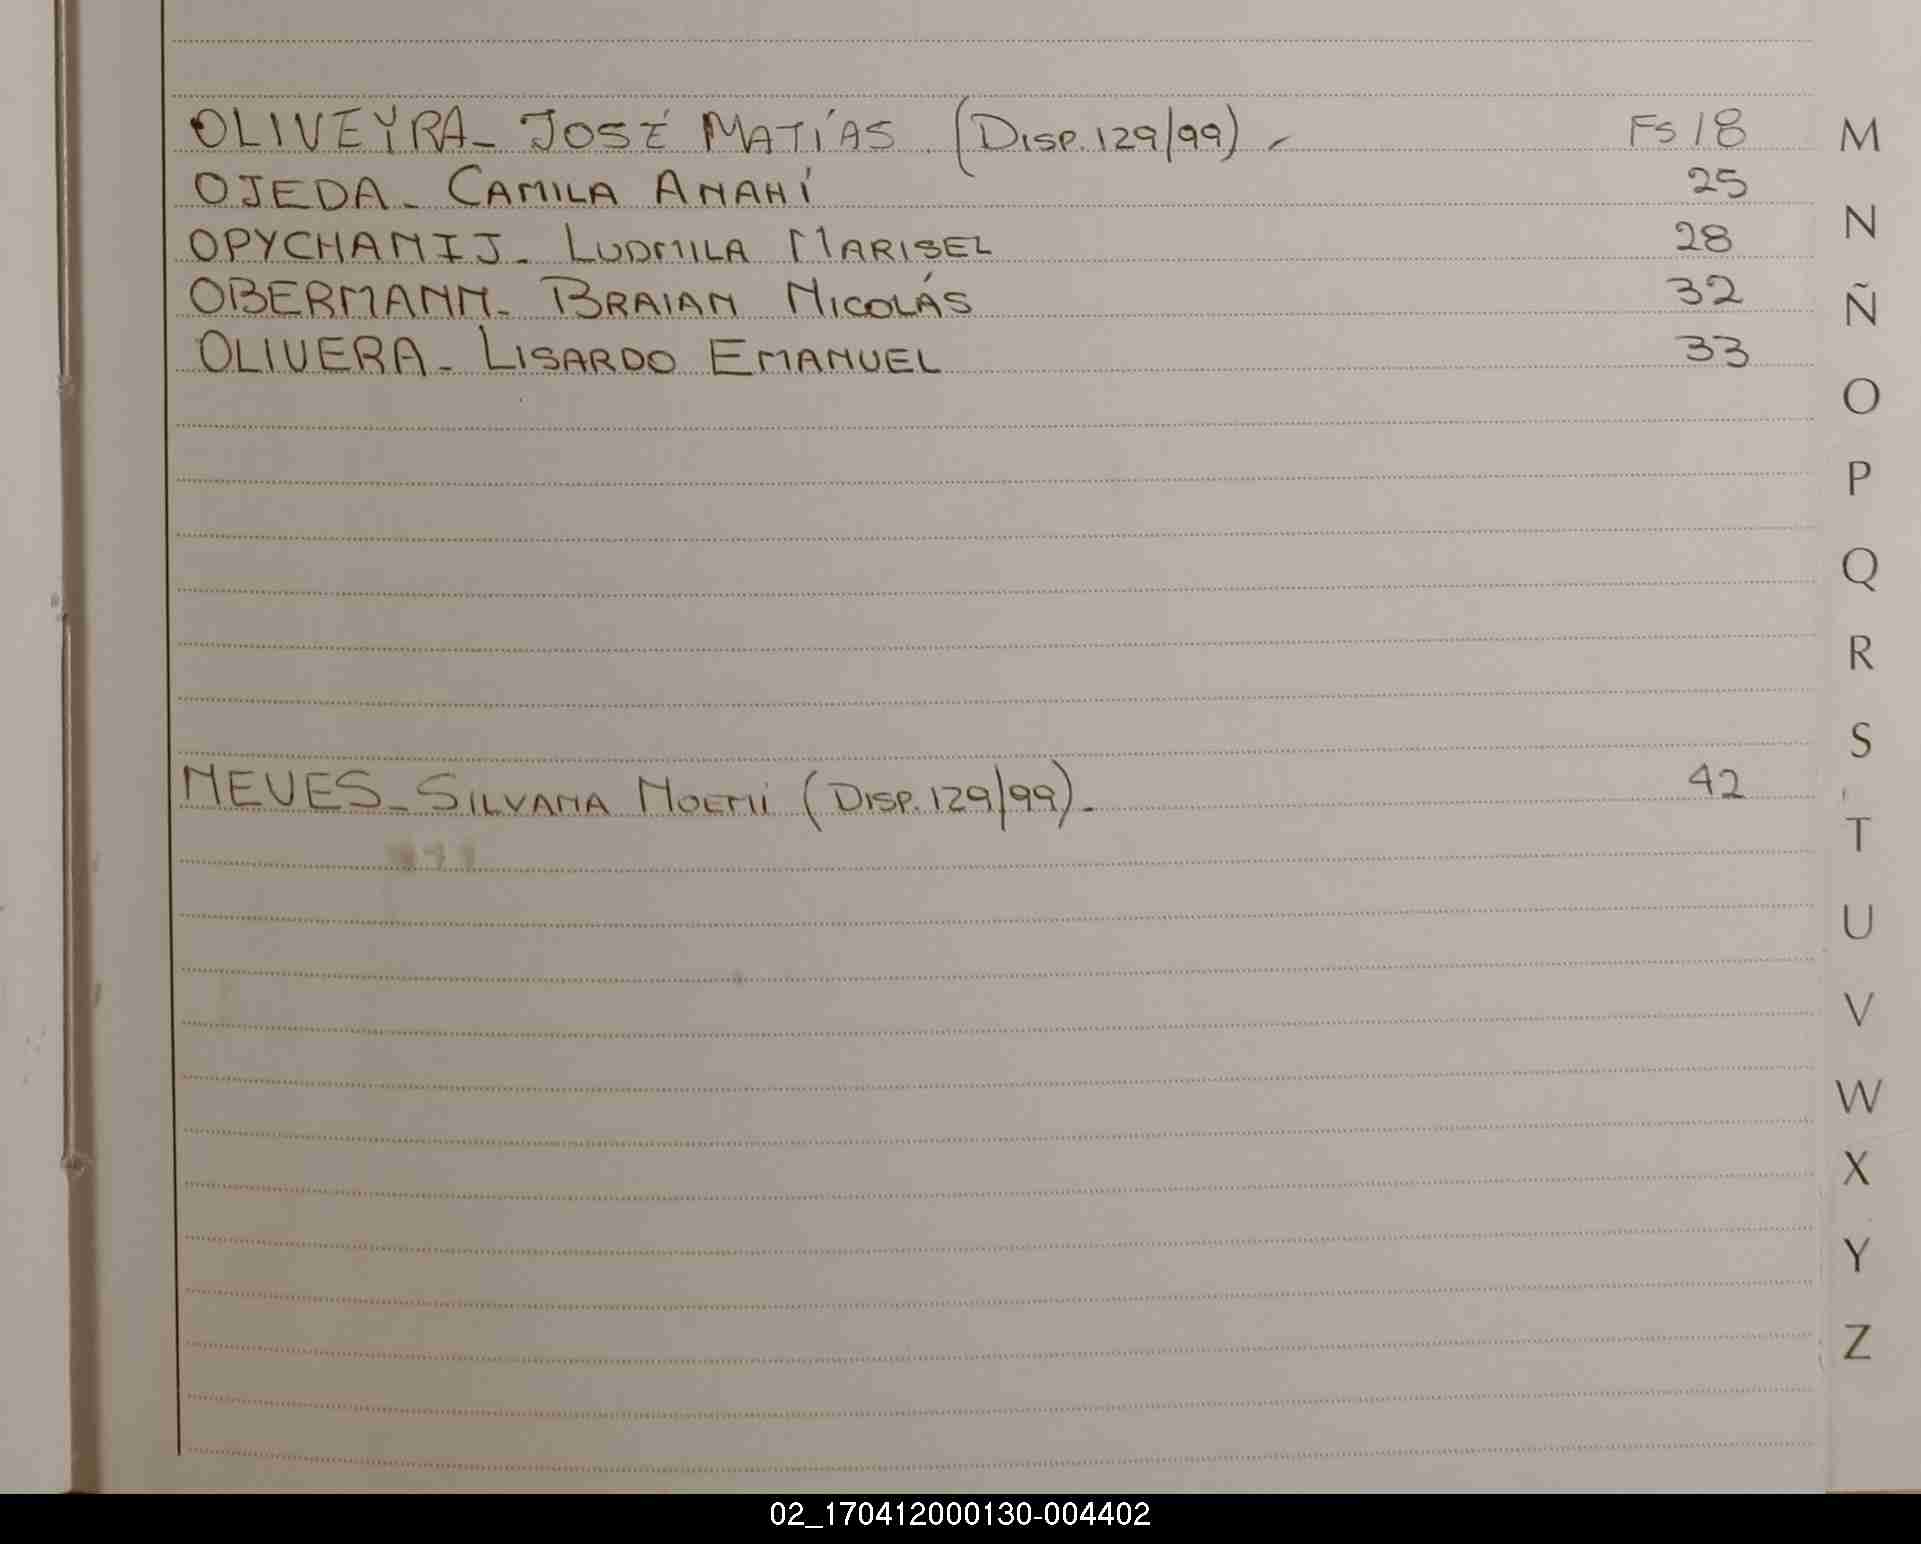 OLIVEYRA_ JOSÉ MATÍAS. (DISP. 129/99) - Fs 18
OJEDA_ CAMILA ANAHÍ 25
OPYCHANIJ_ LUDMILA MARISEL 28
OBERMANN_ BRAIAN NICOLÁS 32
OLIVERA_ LISARDO EMANUEL 33
NEVES_ SILVANA NOEMÍ (DISP. 129/99)._ 42
M
N
Ñ
O
P
Q
R
S
T
U
V
W
X
Y
Z
02_170412000130-004402